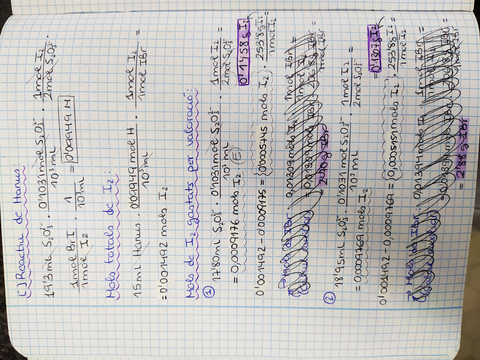 [ ] Reactiu de Hanus:
19'3 mL S₂O₃²⁻ · 0'1031 mol S₂O₃²⁻ / 10³ mL · 1 mol I₂ / 2 mol S₂O₃²⁻ ·
1 mol BrI / 1 mol I₂ · 1 / 10³ mL = 0'09949 M
Mols totals de I₂:
15 ml Hanus · 0'09949 mol H / 10³ mL · 1 mol I₂ / 1 mol IBr =
= 0'001492 mols I₂
Mols de I₂ gastats per valoració:
① 17'80 mL S₂O₃²⁻ · 0'1031 mol S₂O₃²⁻ / 10³ mL · 1 mol I₂ / 2 mol S₂O₃²⁻ =
= 0,0009176 mols I₂
0'001492 - 0'0009175 = 0'0005745 mols I₂ · 253'8 g I₂ / 1 mol I₂ = 0'1458 g I₂
② 18'95 mL S₂O₃²⁻ · 0'1031 mol S₂O₃²⁻ / 10³ mL · 1 mol I₂ / 2 mol S₂O₃²⁻ =
= 0,0009769 mols I₂
0'001492 - 0,0009769 = 0,0005151 mols I₂ · 253'8 g I₂ / 1 mol I₂ = 0'1307 g I₂